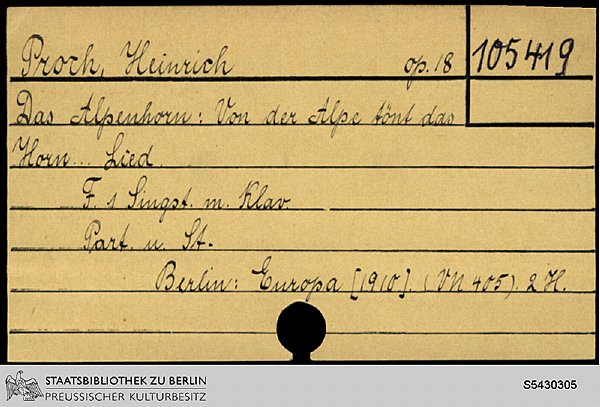 Proch, Heinrich op. 18 105419
Das Alpenhorn: Von der Alpe tönt das
Horn... Lied.
F. 1 Singst. m. Klav
Part. u. St.
Berlin: Europa [1910]. (VN 405). 2 H.
STAATSBIBLIOTHEK ZU BERLIN
PREUSSISCHER KULTURBESITZ
S5430305